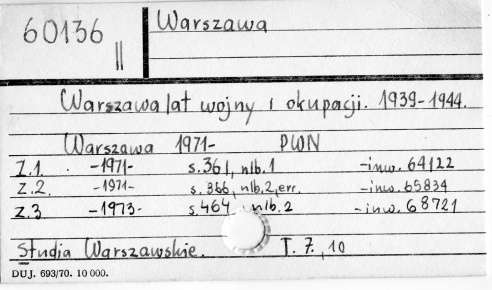 60136
II
Warszawa
Warszawa lat wojny i okupacji. 1939-1944.
Warszawa 1971- PWN
Z.1. -1971- s.361, nlb.1 -inw. 64122
Z.2. -1971- s.366, nlb.2, err. -inw. 65834
Z.3. -1973- s.464, nlb.2 -inw. 68721
Studia Warszawskie. T. 7, 10
DUJ. 693/70. 10 000.